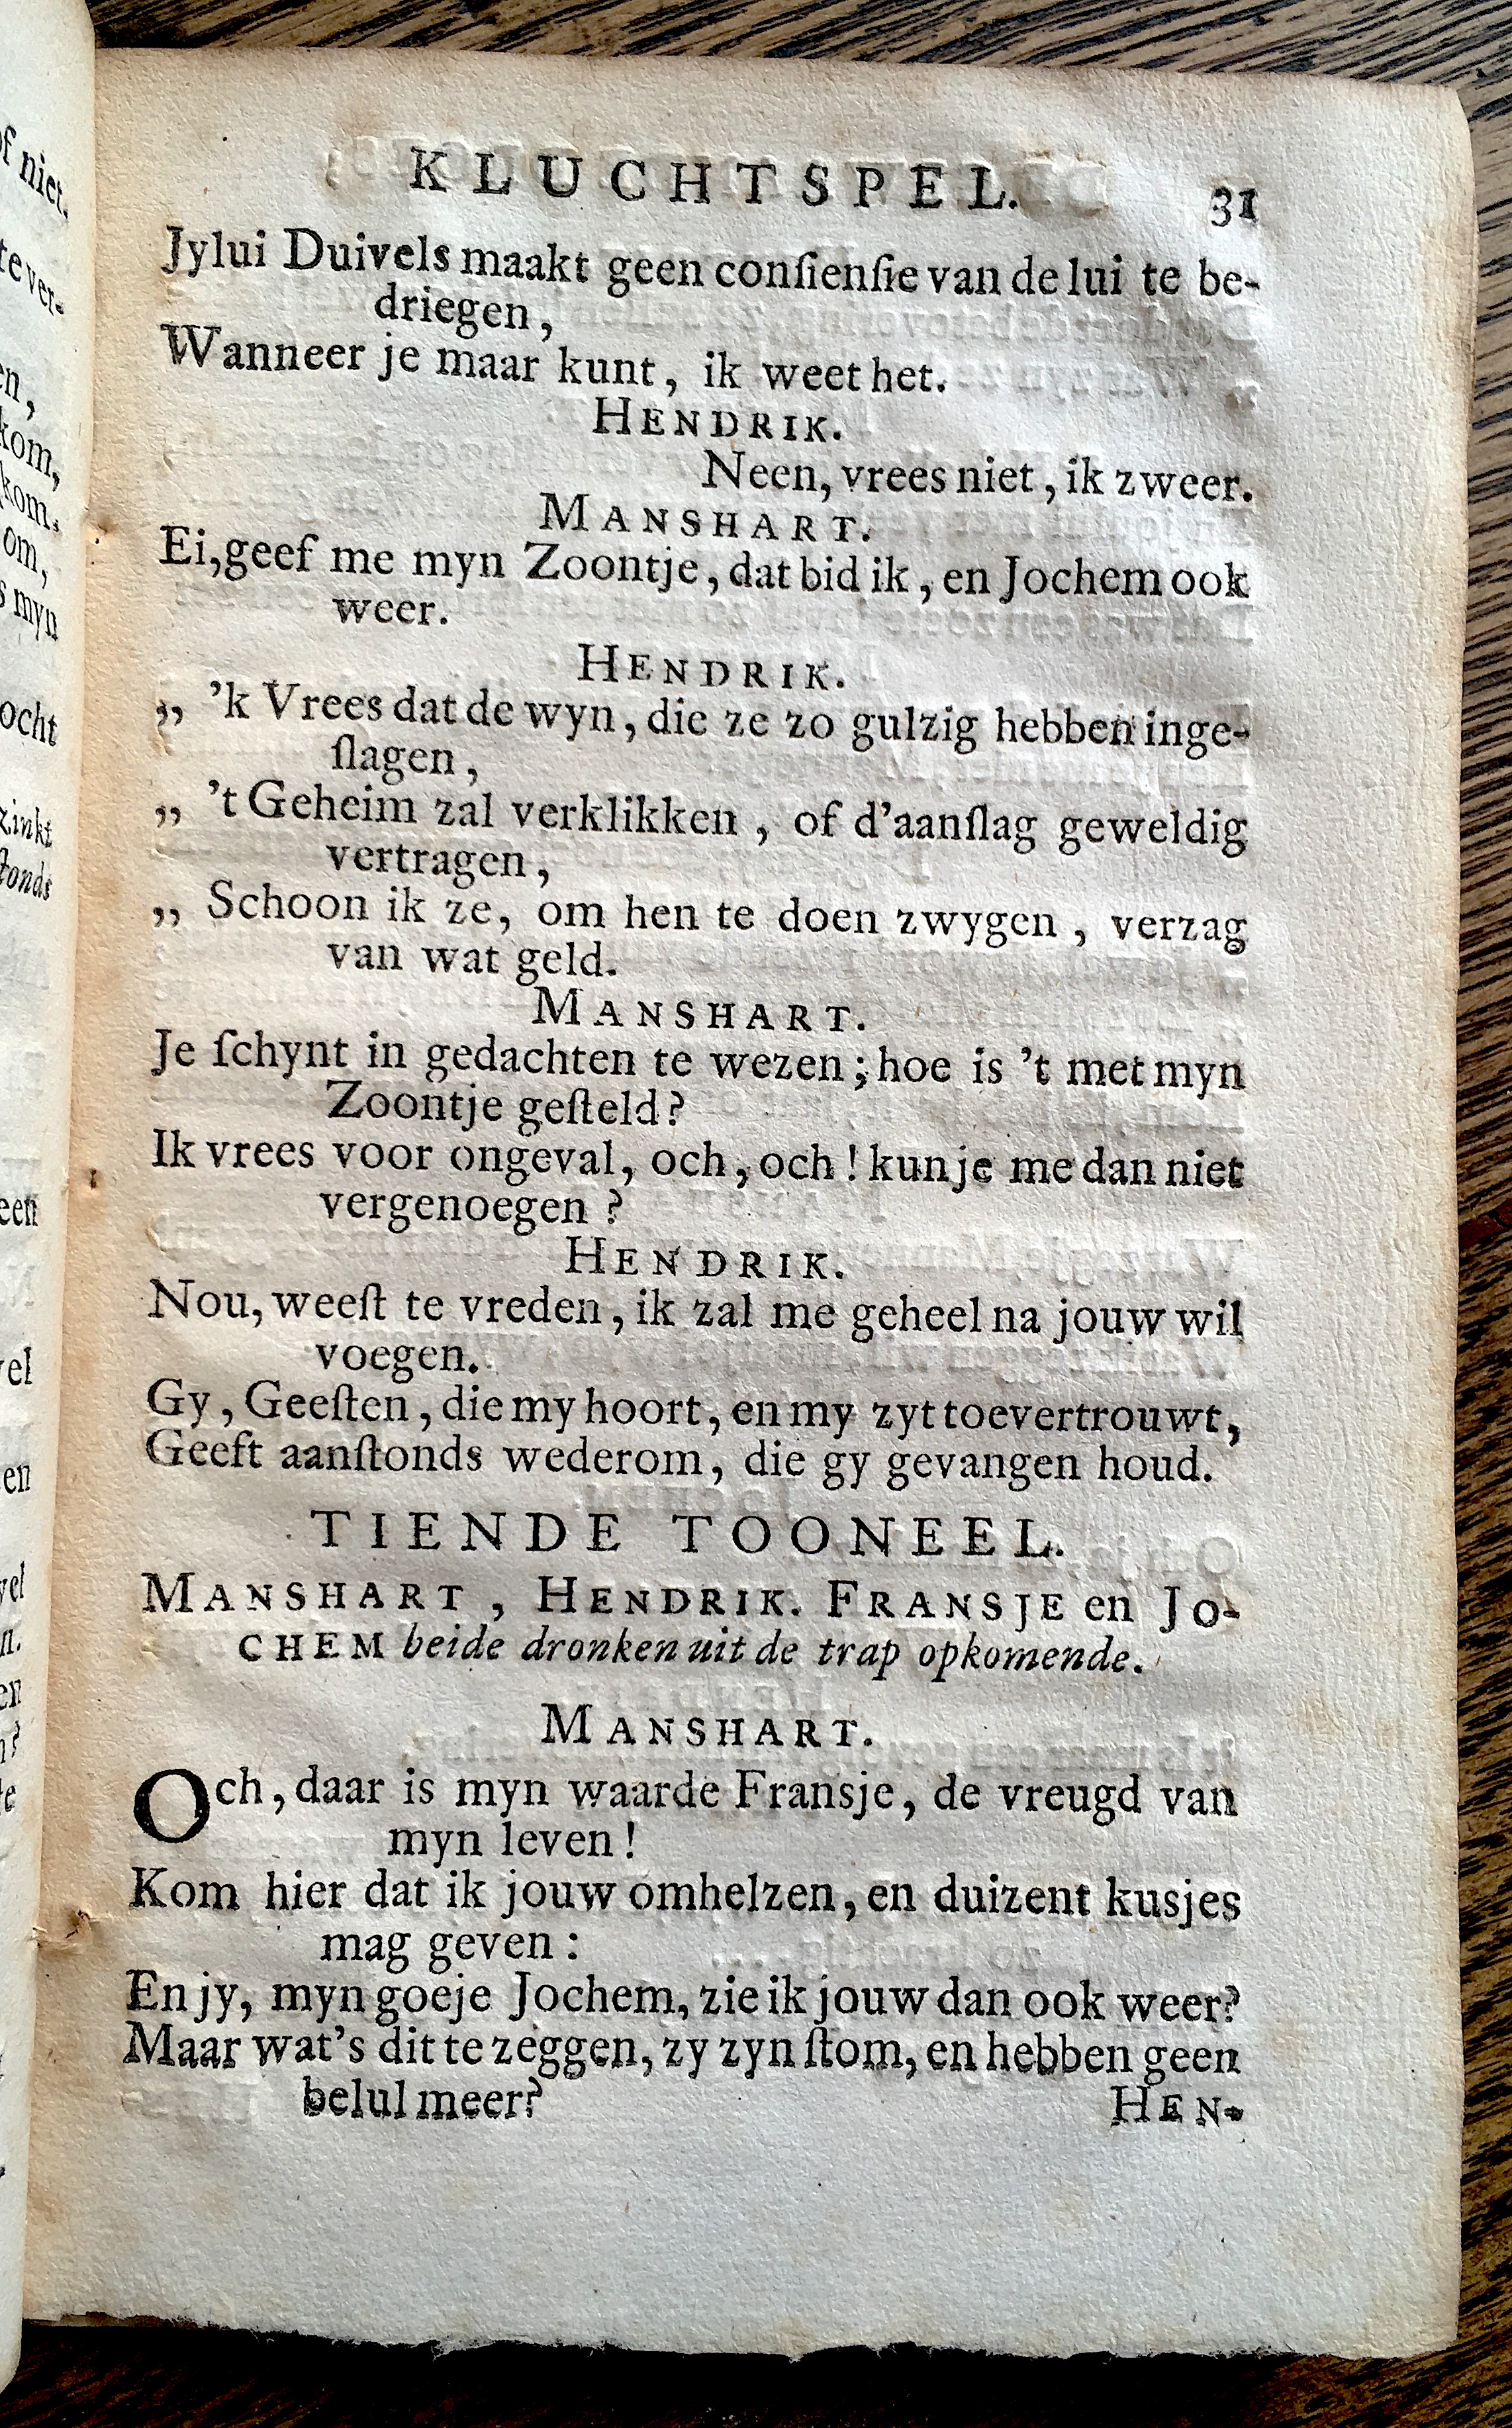 KLUCHTSPEL. 31
Jylui Duivels maakt geen conſienſie van de lui te be-
driegen,
Wanneer je maar kunt, ik weet het.
HENDRIK.
Neen, vrees niet, ik zweer.
MANSHART.
Ei, geef me myn Zoontje, dat bid ik, en Jochem ook
weer.
HENDRIK.
„ 'k Vrees dat de wyn, die ze zo gulzig hebben inge-
ſlagen,
„ 't Geheim zal verklikken, of d'aanſlag geweldig
vertragen,
„ Schoon ik ze, om hen te doen zwygen, verzag
van wat geld.
MANSHART.
Je ſchynt in gedachten te wezen; hoe is 't met myn
Zoontje geſteld?
Ik vrees voor ongeval, och, och! kun je me dan niet
vergenoegen?
HENDRIK.
Nou, weeſt te vreden, ik zal me geheel na jouw wil
voegen.
Gy, Geeſten, die my hoort, en my zyt toevertrouwt,
Geeft aanſtonds wederom, die gy gevangen houd.
TIENDE TOONEEL.
MANSHART, HENDRIK. FRANSJE en JO-
CHEM beide dronken uit de trap opkomende.
MANSHART.
Och, daar is myn waarde Fransje, de vreugd van
myn leven!
Kom hier dat ik jouw omhelzen, en duizent kusjes
mag geven:
En jy, myn goeje Jochem, zie ik jouw dan ook weer?
Maar wat's dit te zeggen, zy zyn ſtom, en hebben geen
belul meer?
HEN-
of niet.
te ver-
en,
kom,
kom.
om,
s myn
ocht
zinkt
ſtonds
een
vel
en
vel
en